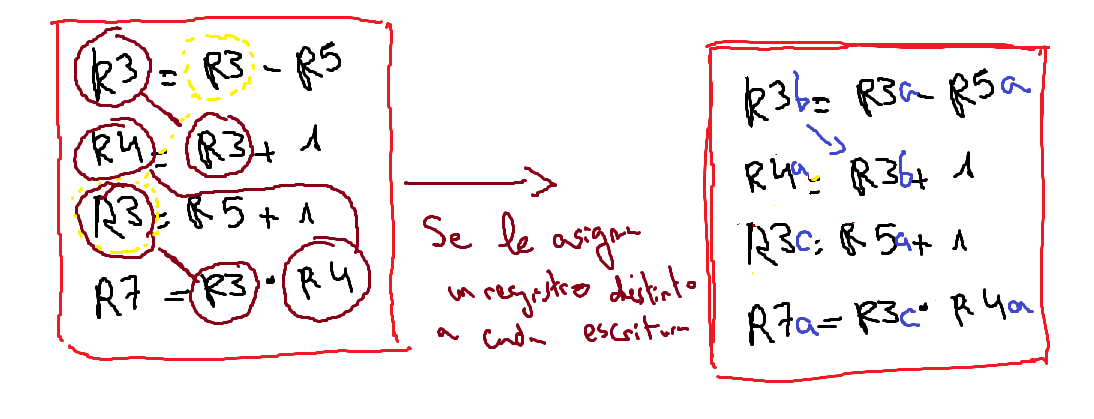 R3 = R3 - R5
R4 = R3 + 1
R3 = R5 + 1
R7 = R3 · R4
Se le asigna
un registro distinto
a cada escritura
R3b = R3a - R5a
R4a = R3b + 1
R3c = R5a + 1
R7a = R3c · R4a